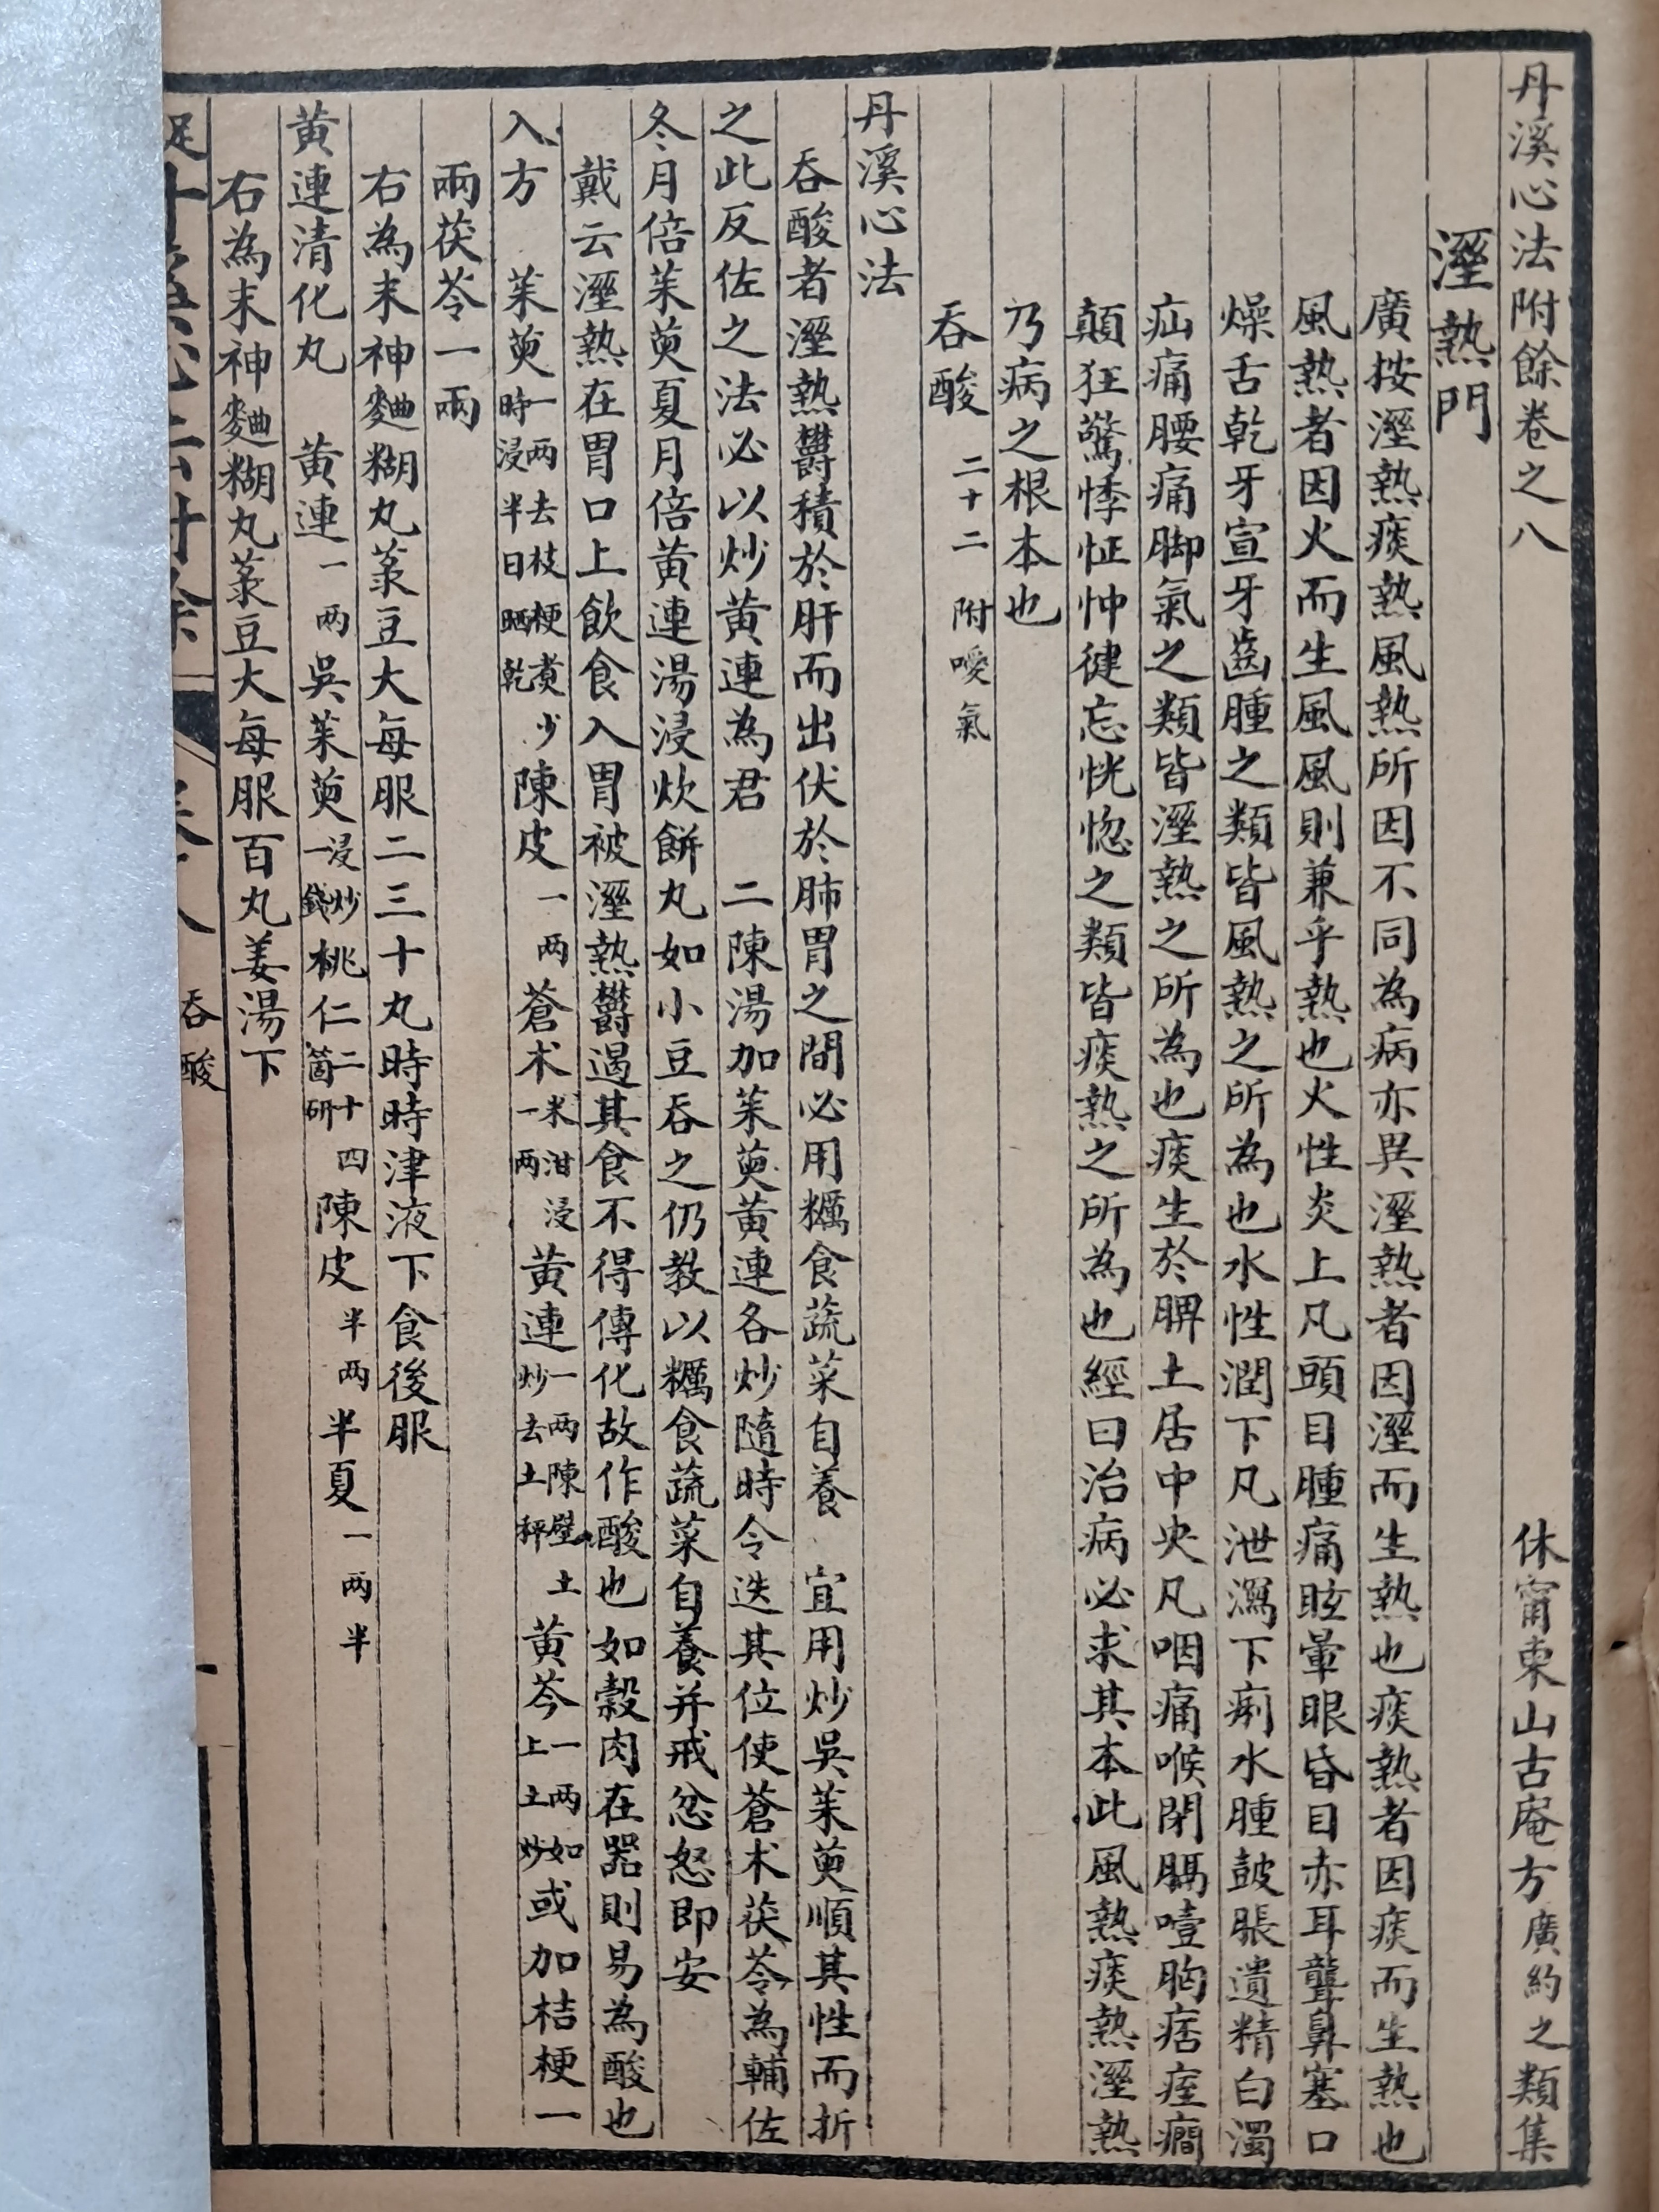 丹溪心法附餘卷之八　休甯東山古庵方廣約之類集
溼熱門
廣按溼熱痰熱風熱所因不同為病亦異溼熱者因溼而生熱也痰熱者因痰而生熱也
風熱者因火而生風風則兼乎熱也火性炎上凡頭目腫痛眩暈眼昏目赤耳聾鼻塞口
燥舌乾牙宣牙齒腫之類皆風熱之所為也水性潤下凡泄瀉下痢水腫鼓脹遺精白濁
疝痛腰痛脚氣之類皆溼熱之所為也痰生於脾土居中央凡咽痛喉閉膈噎胸痞痓癇
顛狂驚悸怔忡健忘恍惚之類皆痰熱之所為也經曰治病必求其本此風熱痰熱溼熱
乃病之根本也
吞酸二十二　附噯氣
丹溪心法
吞酸者溼熱鬱積於肝而出伏於肺胃之間必用糲食蔬菜自養　宜用炒吳茱萸順其性而折
之此反佐之法必以炒黃連為君　二陳湯加茱萸黃連各炒隨時令迭其位使蒼朮茯苓為輔佐
冬月倍茱萸夏月倍黃連湯浸炊餅丸如小豆吞之仍教以糲食蔬菜自養并戒忿怒即安
戴云溼熱在胃口上飲食入胃被溼熱鬱遏其食不得傳化故作酸也如穀肉在器則易為酸也
入方　茱萸一两去枝梗煑少時浸半日晒乾陳皮一两蒼朮米泔浸一两黃連一两陳壁土炒去土秤黃芩一两如上土炒或加桔梗一
兩茯苓一兩
右為末神麯糊丸菉豆大每服二三十丸時時津液下食後服
黃連清化丸　黃連一两吳茱萸浸炒一錢桃仁二十四箇研陳皮半两半夏一两半
右為末神麯糊丸菉豆大每服百丸姜湯下
吞酸